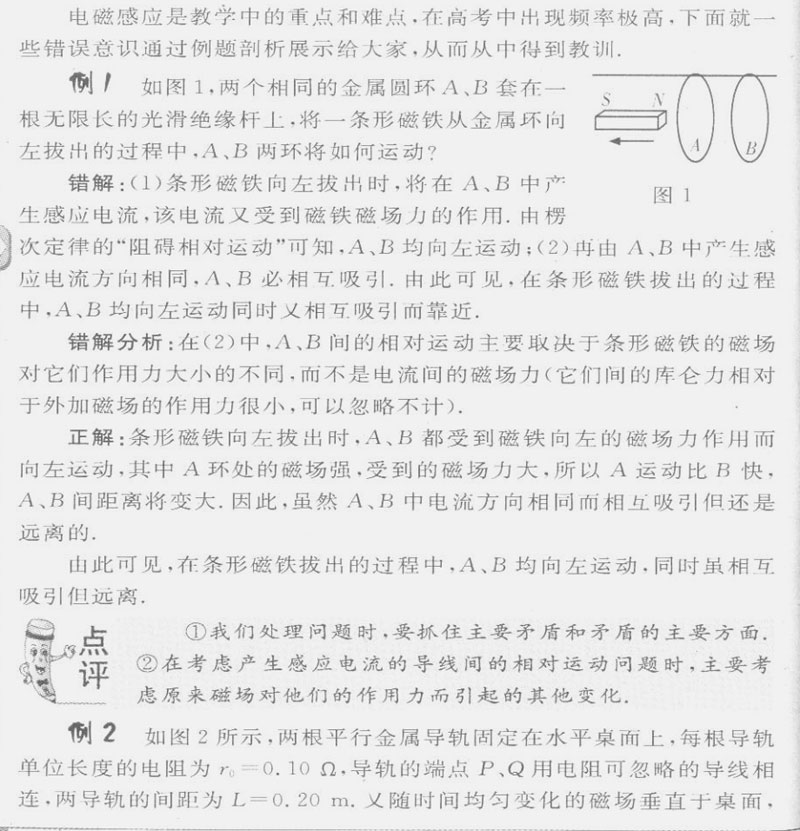 电磁感应是教学中的重点和难点,在高考中出现频率极高,下面就一
些错误意识通过例题剖析展示给大家,从而从中得到教训.
例1 如图1,两个相同的金属圆环A、B套在一
根无限长的光滑绝缘杆上,将一条形磁铁从金属环向
左拔出的过程中,A、B两环将如何运动?
S N
A B
图 1
错解:(1)条形磁铁向左拔出时,将在A、B中产
生感应电流,该电流又受到磁铁磁场力的作用.由楞
次定律的“阻碍相对运动”可知,A、B均向左运动;(2)再由A、B中产生感
应电流方向相同,A、B必相互吸引.由此可见,在条形磁铁拔出的过程
中,A、B均向左运动同时又相互吸引而靠近.
错解分析:在(2)中,A、B间的相对运动主要取决于条形磁铁的磁场
对它们作用力大小的不同,而不是电流间的磁场力(它们间的库仑力相对
于外加磁场的作用力很小,可以忽略不计).
正解:条形磁铁向左拔出时,A、B都受到磁铁向左的磁场力作用而
向左运动,其中A环处的磁场强,受到的磁场力大,所以A运动比B快,
A、B间距离将变大.因此,虽然A、B中电流方向相同而相互吸引但还是
远离的.
由此可见,在条形磁铁拔出的过程中,A、B均向左运动,同时虽相互
吸引但远离.
点评
①我们处理问题时,要抓住主要矛盾和矛盾的主要方面.
②在考虑产生感应电流的导线间的相对运动问题时,主要考
虑原来磁场对他们的作用力而引起的其他变化.
例2 如图2所示,两根平行金属导轨固定在水平桌面上,每根导轨
单位长度的电阻为r₀=0.10 Ω,导轨的端点P、Q用电阻可忽略的导线相
连,两导轨的间距为L=0.20 m.又随时间均匀变化的磁场垂直于桌面,